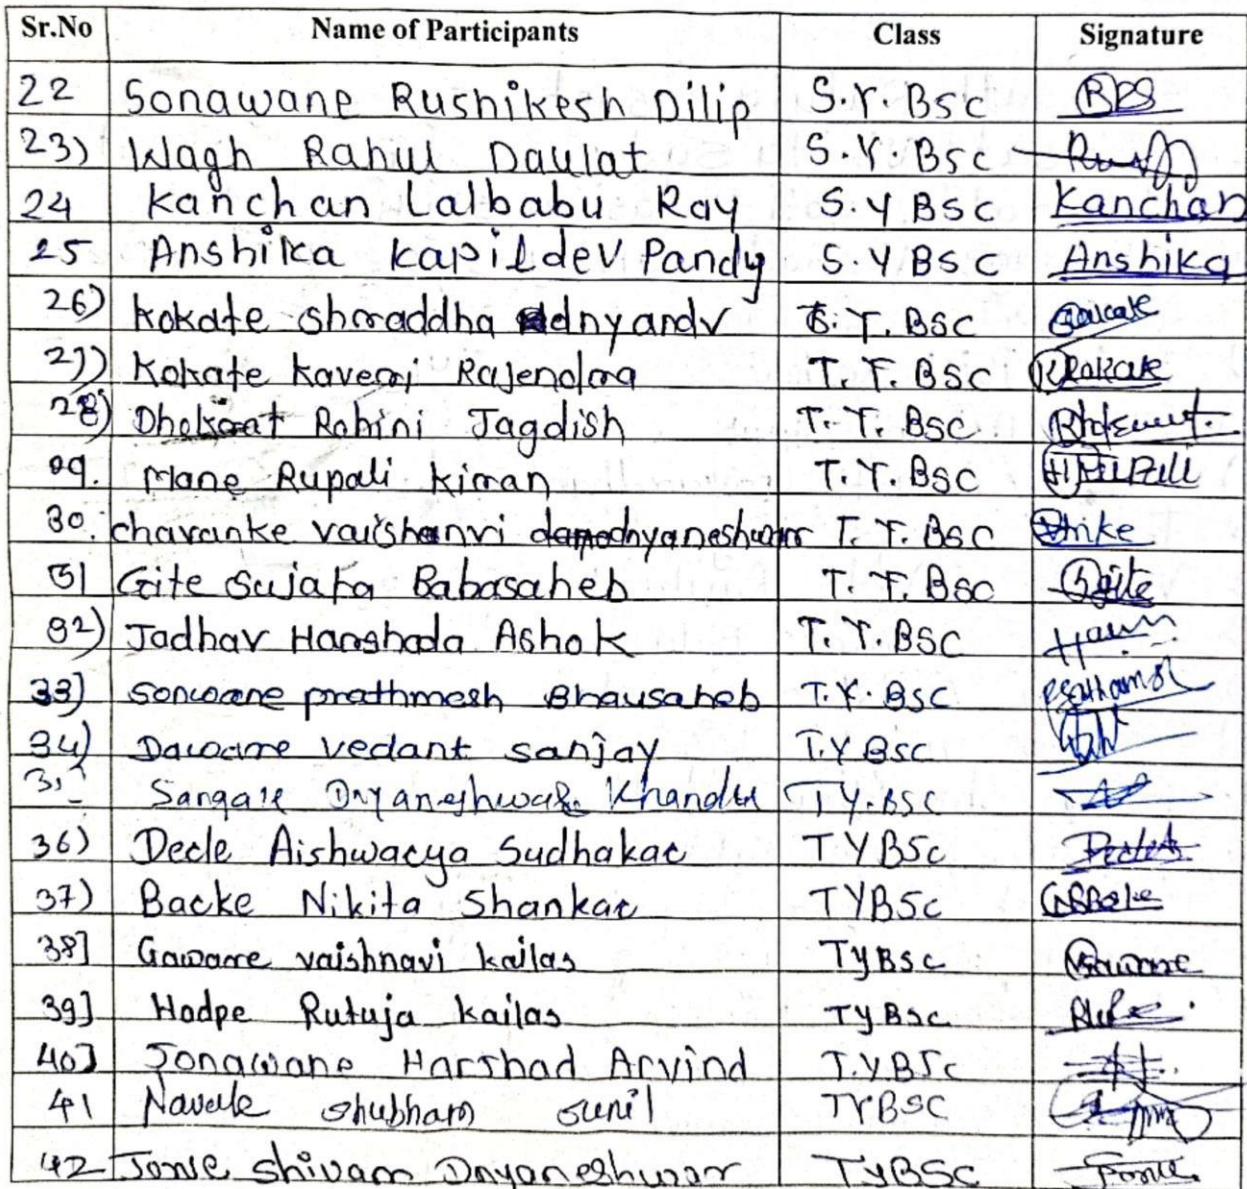 Sr.No Name of Participants Class Signature
22 Sonawane Rushikesh Dilip S.Y.Bsc RDS
23) Wagh Rahul Daulat S.Y.Bsc
24 Kanchan Lalbabu Ray S.Y Bsc Kanchan
25 Anshika Kapildev Pandy S.Y Bsc Anshika
26) Kokate Shraddha dnyandv T.Y.Bsc
27) Kokate Kaveri Rajendra T.Y.Bsc Kokate
28) Rohini Jagdish T.Y.Bsc
29. Mane Rupali kiran T.Y.Bsc
30. chavanke vaishanvi dnyaneshwar T.Y.Bsc
31 Gite Sujata Babasaheb T.Y.Bsc Sgite
32) Jadhav Harshada Ashok T.Y.Bsc
33] Sonwane prathmesh Bhausaheb T.Y.Bsc
34) Daware vedant sanjay T.Y Bsc
Sangale Dnyaneshwar Khandu TY.BSC
36) Dede Aishwarya Sudhakar TYBSc
37) Barke Nikita Shankar TYBSc
38] Gaware vaishnavi kailas TyBsc
39] Hodpe Rutuja kailas TyBsc
40] Sonawane Harshad Arvind T.Y.BSc
41 Navale Shubham Sunil TYBSC
42 Shivam Dnyaneshwar TyBSc